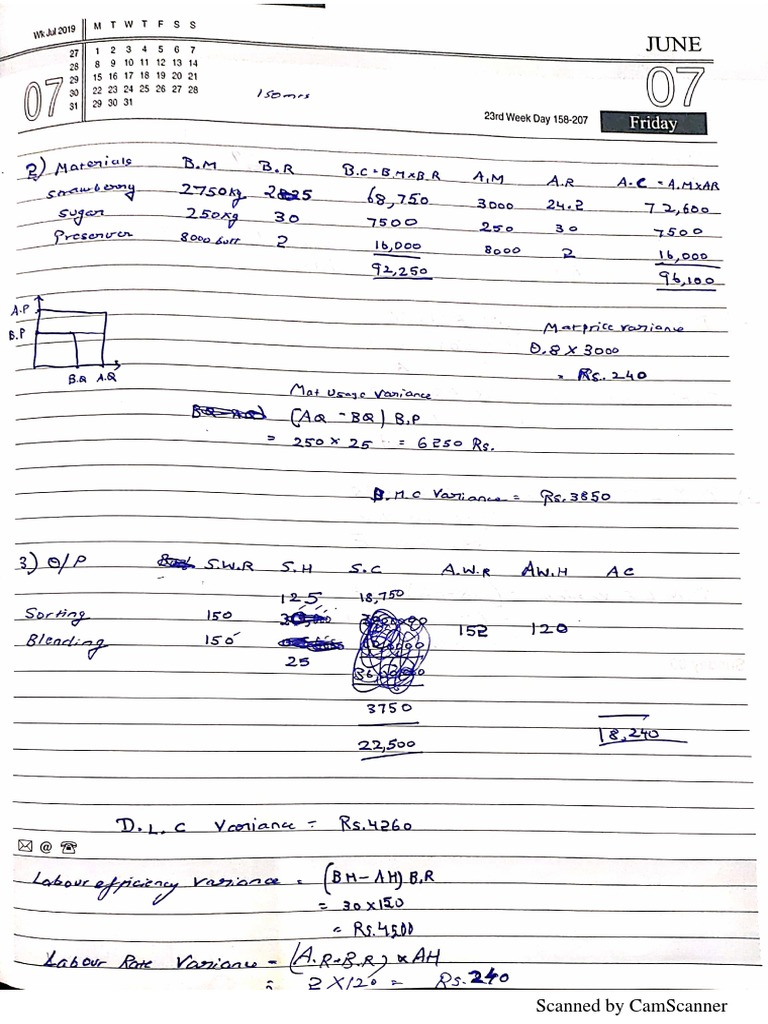 Wk Jul 2019 M T W T F S S
27 1 2 3 4 5 6 7
28 8 9 10 11 12 13 14
29 15 16 17 18 19 20 21
30 22 23 24 25 26 27 28
31 29 30 31
07
JUNE
07
150mrs
23rd Week Day 158-207 Friday
2) Materials B.M B.R B.C = B.M×B.R A.M A.R A.C = A.M×AR
Strawberry 2750kg 25 68,750 3000 24.2 72,600
Sugar 250kg 30 7500 250 30 7500
Preserver 8000 bott 2 16,000 8000 2 16,000
92,250 96,100
A.P
B.P
B.Q A.Q
Mat price variance
0.8 × 3000
= Rs. 240
Mat usage variance
(AQ - BQ) B.P
= 250 × 25 = 6250 Rs.
B.M.C Variance = Rs.3850
3) O/P S.W.R S.H S.C A.W.R AW.H AC
125 18,750
Sorting 150 152 120
Blending 150
25
3750
18,240
22,500
D.L.C Variance = Rs.4260
Labour efficiency variance = (BH - AH) B.R
= 30 × 150
= Rs.4500
Labour Rate Variance = (A.R - B.R) × AH
= 2 × 120 = Rs. 240
Scanned by CamScanner